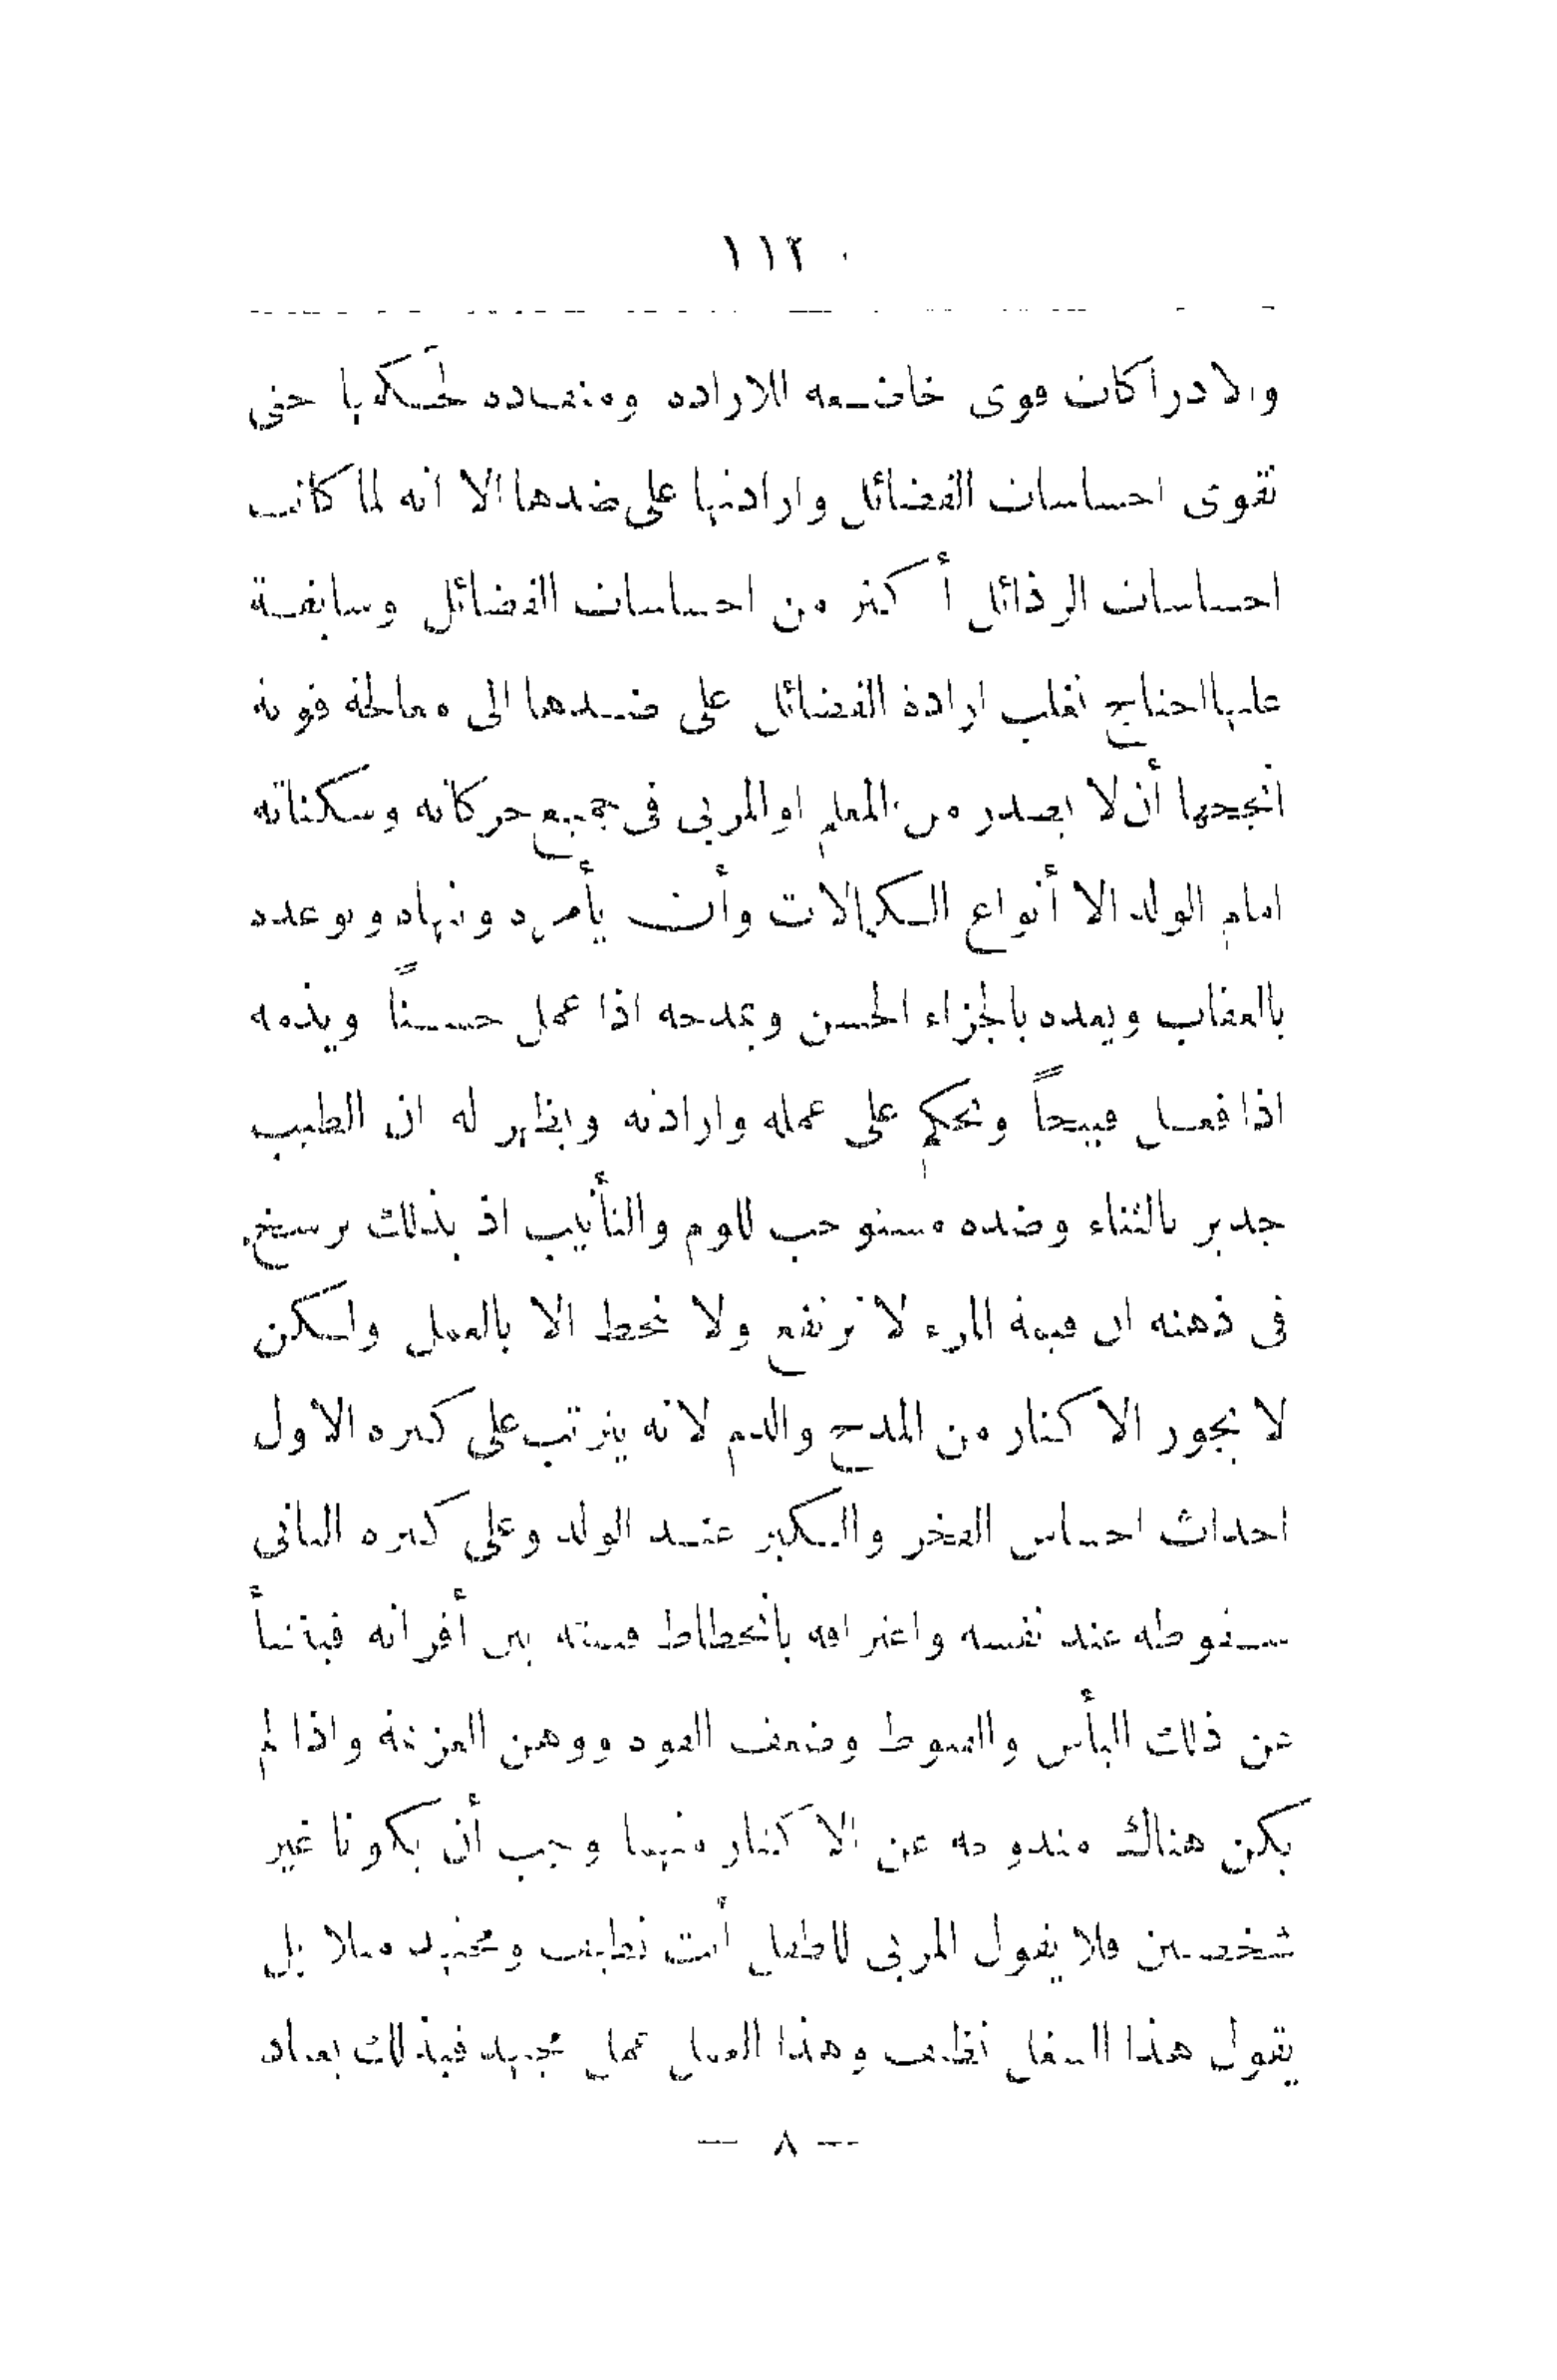 ١١٢
والادراكات قوى خاضعة للارادة ومنقادة لحكمها حتى
تقوى احساسات الفضائل وارادتها على ضدها الا انه لما كانت
احساسات الرذائل أكثر من احساسات الفضائل وسابقة
عليها احتاج تغلب ارادة الفضائل على ضدها الى معالجة قوية
أنجحها أن لا يصدر من المعلم او المربي في جميع حركاته وسكناته
امام الولد الا أنواع الكمالات وأن يأمره وينهاه ويوعده
بالعقاب ويعده بالجزاء الحسن ويمدحه اذا عمل حسناً ويذمه
اذا فعل قبيحاً ويحكم على عمله وارادته ويظهر له ان الطيب
جدير بالثناء وضده مستوجب للوم والتأنيب اذ بذلك يرسخ
في ذهنه ان قيمة المرء لا ترتفع ولا تحط الا بالعمل ولكن
لا يجوز الاكثار من المدح والذم لانه يترتب على كثرة الاول
احداث احساس الفخر والكبر عند الولد وعلى كثرة الثاني
سقوطه عند نفسه واعترافه بانحطاط قيمته بين أقرانه فينشأ
عن ذلك اليأس والقنوط وضعف القوة ووهن العزيمة واذا لم
يكن هناك مندوحة عن الاكثار منهما وجب أن يكونا غير
شخصيين فلا يقول المربي للطفل أنت نظيف ومجتهد مثلا بل
يقول هذا الطفل نظيف وهذا العمل عمل مجيد فبذلك يعتاد
— ٨ —